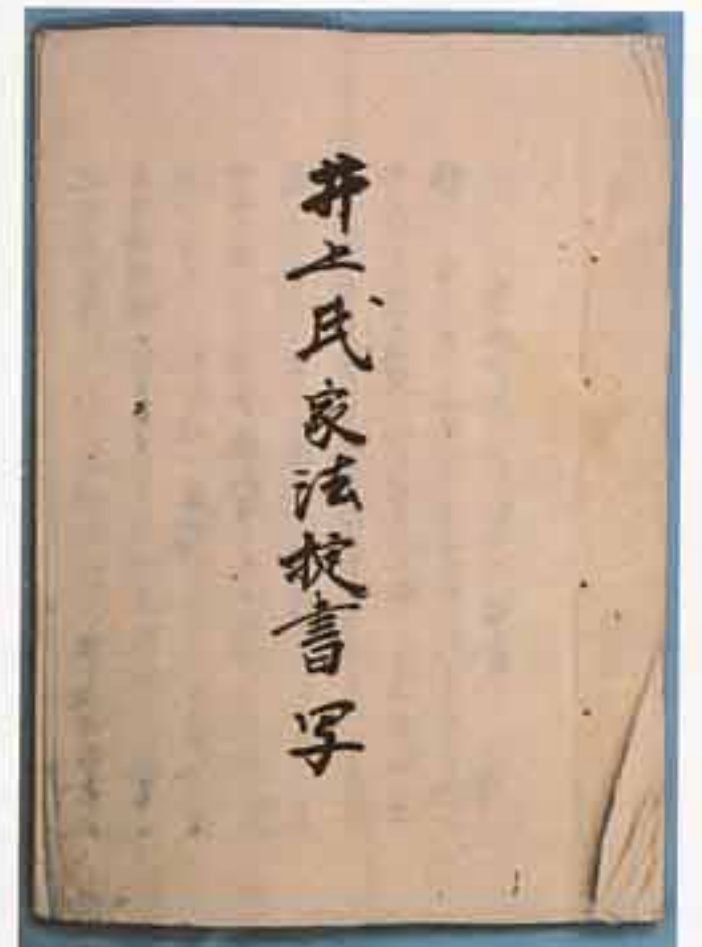 井上氏家法掟書写